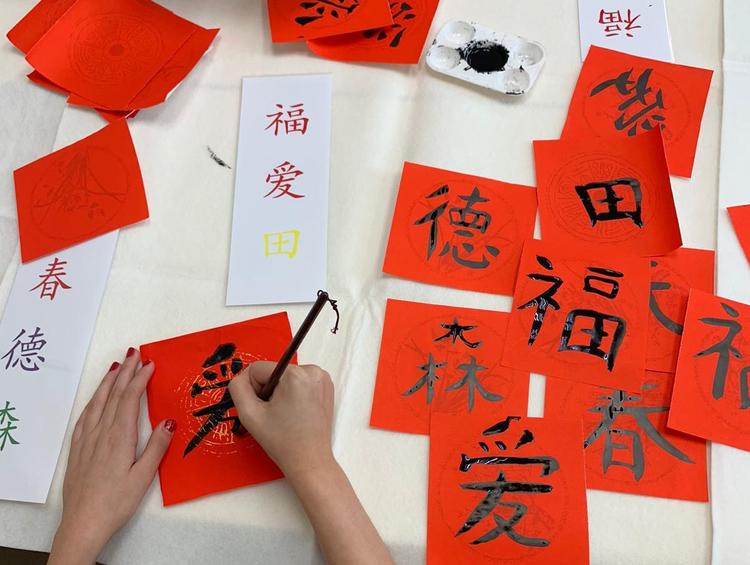 福
福
爱
田
春
德
森
爱
德
田
福
森
春
爱